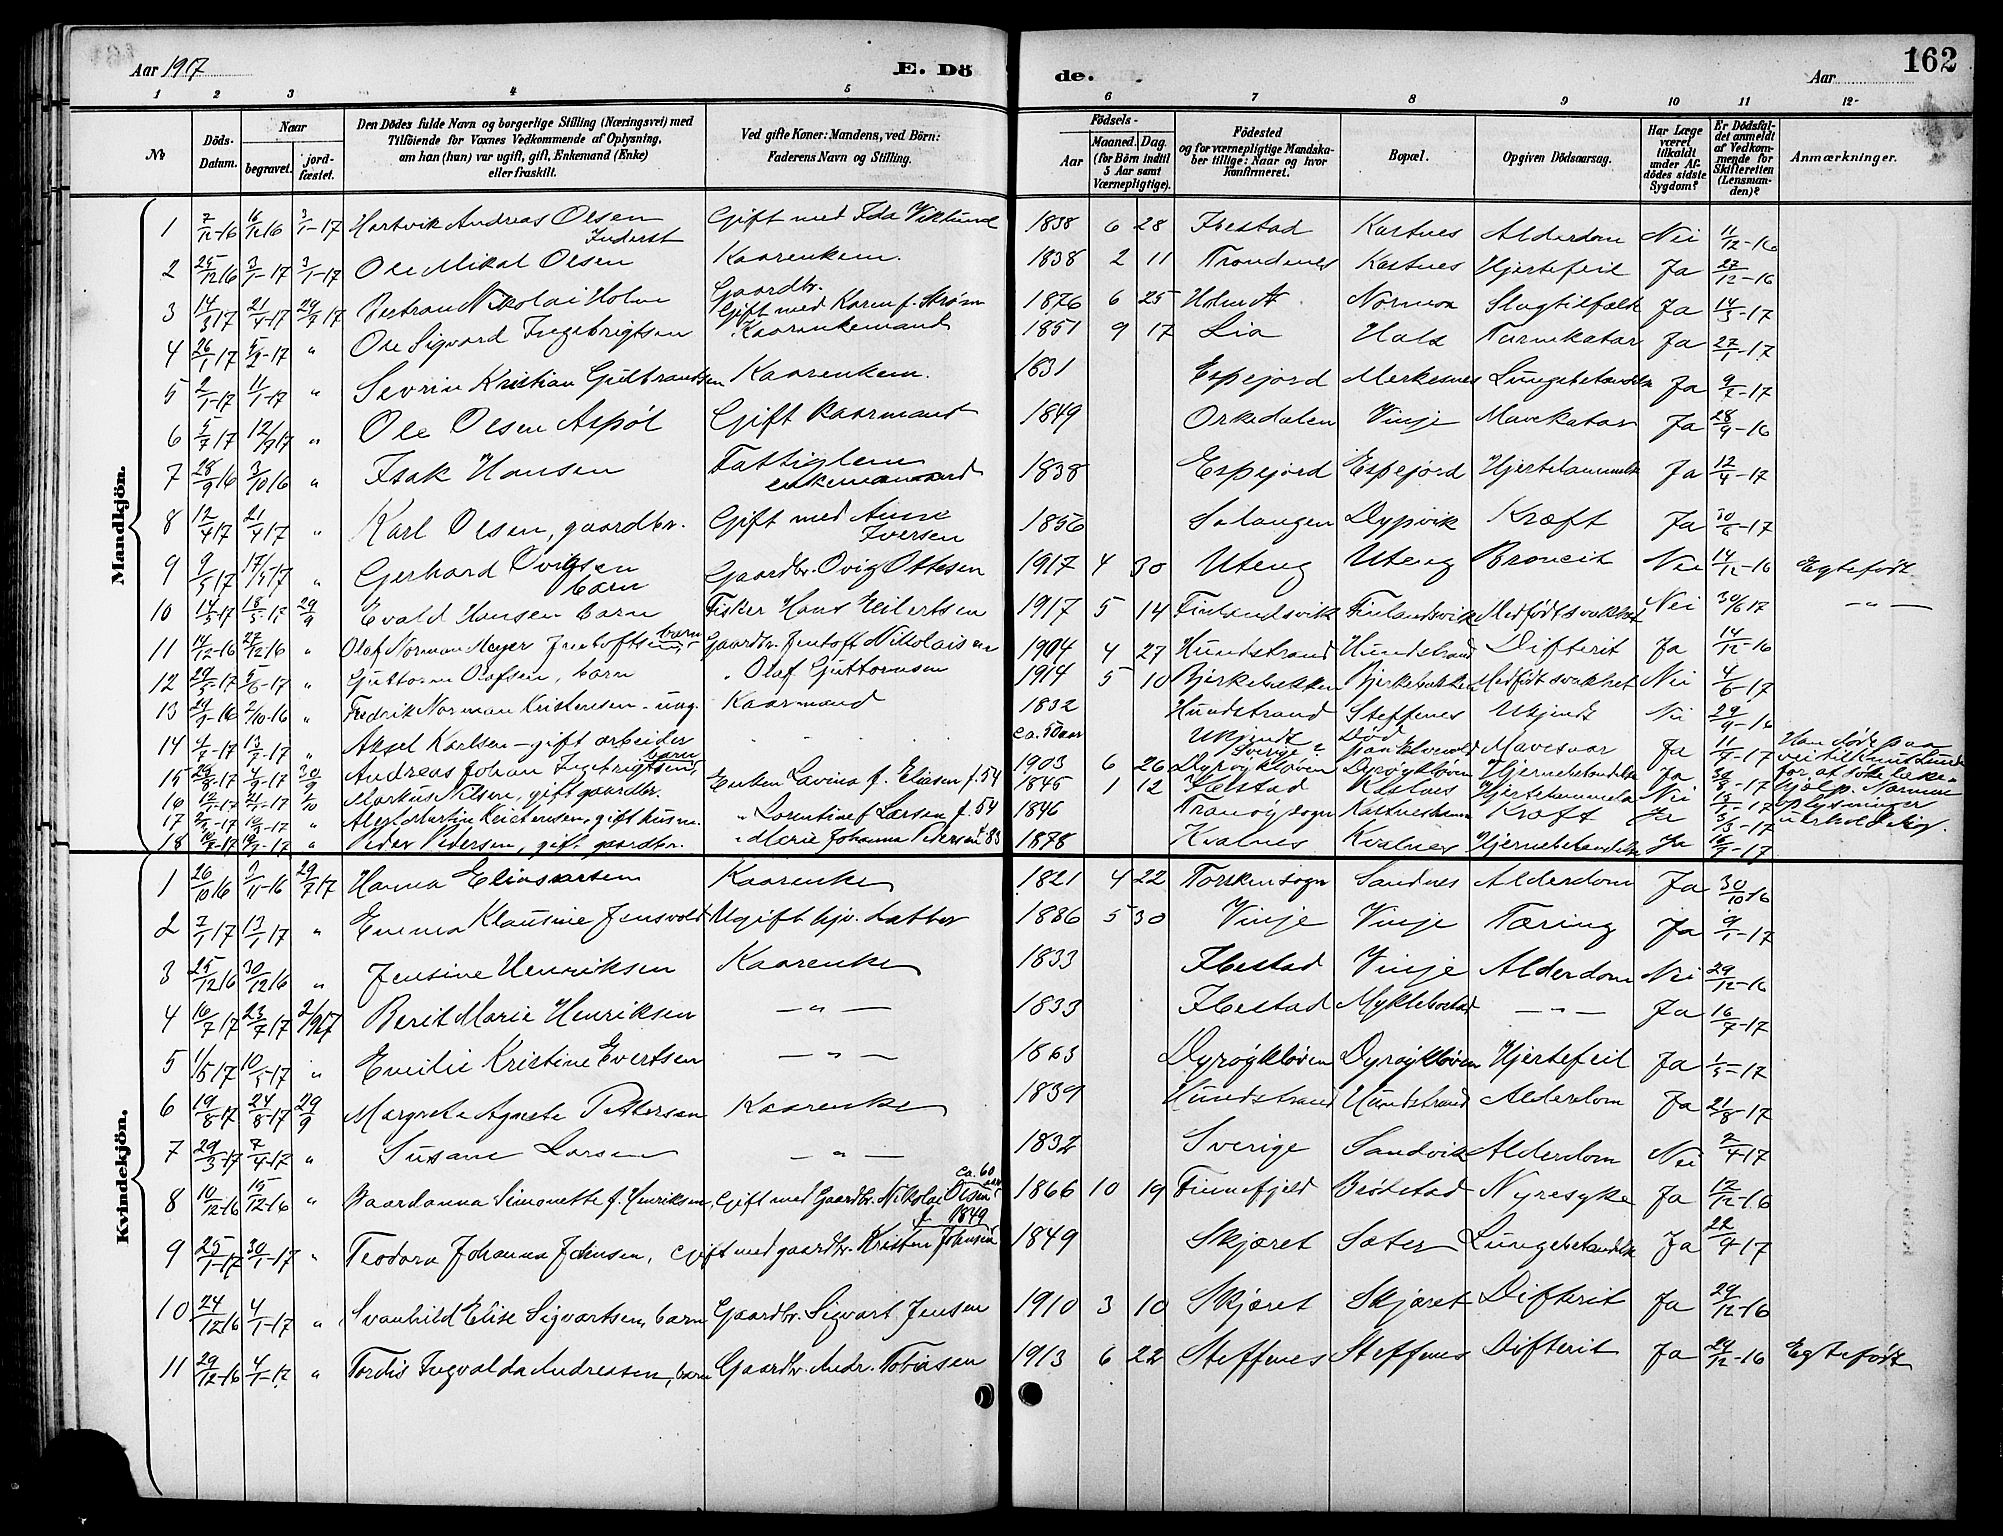 Aar 1917
E. Dö
de.
Aar
162
1 2 3 4 5 6 7 8 9 10 11 12
No
Döds-Datum.
Naar
begravet.
jord-fæstet.
Den Dödes fulde Navn og borgerlige Stilling (Næringsvei) med Tilföiende for Voxnes Vedkommende af Oplysning, om han (hun) var ugift, gift, Enkemand (Enke) eller fraskilt.
Ved gifte Koner: Mandens, ved Börn: Faderens Navn og Stilling.
Födsels-
Aar
Maaned. Dag. (for Börn indtil 5 Aar samt Værnepligtige).
Födested og for værnepligtige Mandskaber tillige: Naar og hvor konfirmeret.
Bopæl.
Opgiven Dödsaarsag.
Har Læge været tilkaldt under Afdödes sidste Sygdom?
Er Dödsfaldet anmeldt af Vedkommende for Skifteretten (Lensmanden)?
Anmærkninger.
Mandkjön.
1 7/12-16 16/12 16 3/1-17 Hartvik Andreas Olsen Gift med Ida 1838 6 28 Ibestad Kastnes Alderdom Nei 11/12-16
2 25/12 16 3/1-17 3/1-17 Ole Mikal Olsen Kaarenkem. 1838 2 11 Trondenes Kastnes Hjertefeil Ja 27/12-16
3 14/3 17 21/4-17 29/7 17 Nikolai Holm Gaardbr. Gift med Karen f. Strøm 1876 6 25 Holm Slagtilfælde Ja 14/3-17
4 26/1 17 5/2-17 " Ole Sigvard Ingebrigtsen Kaarenkemand 1851 9 17 Lia Hals Tarmkatar Ja 27/1-17
5 2/1-17 11/1-17 " Sevrin Kristian Gulbrandsen Kaarenkem. 1831 Espejord Lungebetændelse Ja 9/2-17
6 5/7 17 12/9 17 " Ole Olsen Aspøl Gift Kaarmand 1849 Orkedalen Vinje Mavekatar Ja 28/9-16
7 28/9 16 3/10 16 " Isak Hansen Fattiglem enkemand 1838 Espejord Espejord Ja 12/4-17
8 12/4 17 21/4 17 " Karl Olsen, gaardbr. Gift med Anne Iversen 1856 Salangen Dypvik Kræft Ja 30/6-17
9 9/5 17 17/5-17 " Gerhard Ovigsen barn Gaardbr. Ovig Ottesen 1917 4 30 Uteng Uteng Broncit Nei 14/12-16 Egtefødt
10 14/5-17 18/5-17 29/9 Evald Hansen barn Fisker Hans Eilertsen 1917 5 14 Finlandsvik Finlandsvik Medfødt svakhet Nei 30/6 17 —"—
11 14/12-16 27/12 16 " Olaf Norman Meyer Jentoftsen, barn Gaardbr. Jentoft Nikolaisen 1904 4 27 Hundstrand Hundstrand Difterit Ja 14/12-16
12 29/5-17 5/6-17 " Guttorm Olafsen, barn " Olaf Guttormsen 1914 5 10 Bjerkebækken Bjerkebækken Medfødt svakhet Nei 4/6-17
13 29/9-16 2/10-16 " Fredrik Norman Kristensen - Kaarmand 1832 Hundstrand Steffenes Ukjendt Nei 29/9-16
14 4/7-17 13/7-17 " Aksel Karlsen - gift arbeider ca. 50 aar Ukjendt Sverige? Død Mavesaar Ja 11/7-17 Han døde paa
15 29/8-17 4/9-17 30/9 Andreas Johan Ingebrigtsen, barn 1903 6 26 Dyrøykløven Dyrøykløven Hjernebetændelse Ja 30/8-17
16 Markus Nilsen, gift gaardbr. Enken Lavina f. Eliasen f. 54 1845 1 12 Kastnes Nei
17 Alex. Martin Kristensen, gift husm. " Lorentine f Larsen f. 54 1846 Tranøy sogn Kræft Ja
18 Peder Pedersen, gift gaardbr. " Marie Johanna Pedersen f. 83 1878 Kvalnes Kvalnes Hjernebetændelse Ja
Kvindekjön.
1 26/10 16 7/11-16 29/7 17 Hanna Kaarenke 1821 4 22 Torsken sogn Sandnes Alderdom Ja 30/10 16
2 7/1 17 13/1 17 " Emma Klausine Jensvold Ugift hjv. datter 1886 5 30 Vinje Vinje Tæring Ja 9/1-17
3 25/12 16 30/12 16 " Jensine Henriksen Kaarenke 1833 Ibestad Vinje Alderdom Nei 29/12-16
4 16/7 17 23/7 17 2/9 17 Berit Marie Henriksen —"— 1833 Ibestad Myklebostad —"— Ja 16/7-17
5 1/5 17 10/5-17 " Emilie Kristine Evertsen —"— 1863 Dyrøykløven Dyrøykløven Hjertefeil Ja 1/5-17
6 19/8-17 24/8-17 29/9 Margrete Agnete Pettersen Kaarenke 1839 Hundstrand Hundstrand Alderdom Ja 21/8-17
7 29/3-17 7/4-17 " Susane Larsen —"— 1832 Sverige Sandvik Alderdom Nei 2/4 17
8 10/12-16 15/12-16 " Baardanna Simonette f. Henriksen, Gift med Gaardbr. Nikolai Olsen ca. 60 aar 1866 10 19 Finnefjeld Brøstad Nyresyke Ja 12/12-16
9 25/1-17 30/1-17 " Teodora Johanna Johnsen, Gift med gaardbr. Kristen Johnsen f. 1849 1849 Skjæret Sæter Lungebetændelse Ja
10 24/12-16 4/1-17 " Svanhild Elise Sigvartsen, barn Gaardbr. Sigvart Jensen 1910 3 10 Skjæret Skjæret Difterit Ja 29/12-16
11 29/12-16 4/1-17 " Tordis Ingvalda Andreasen, barn Gaardbr. Andr. Tobiasen 1913 6 22 Steffenes Steffenes Difterit Ja 29/12-16 Egtefødt